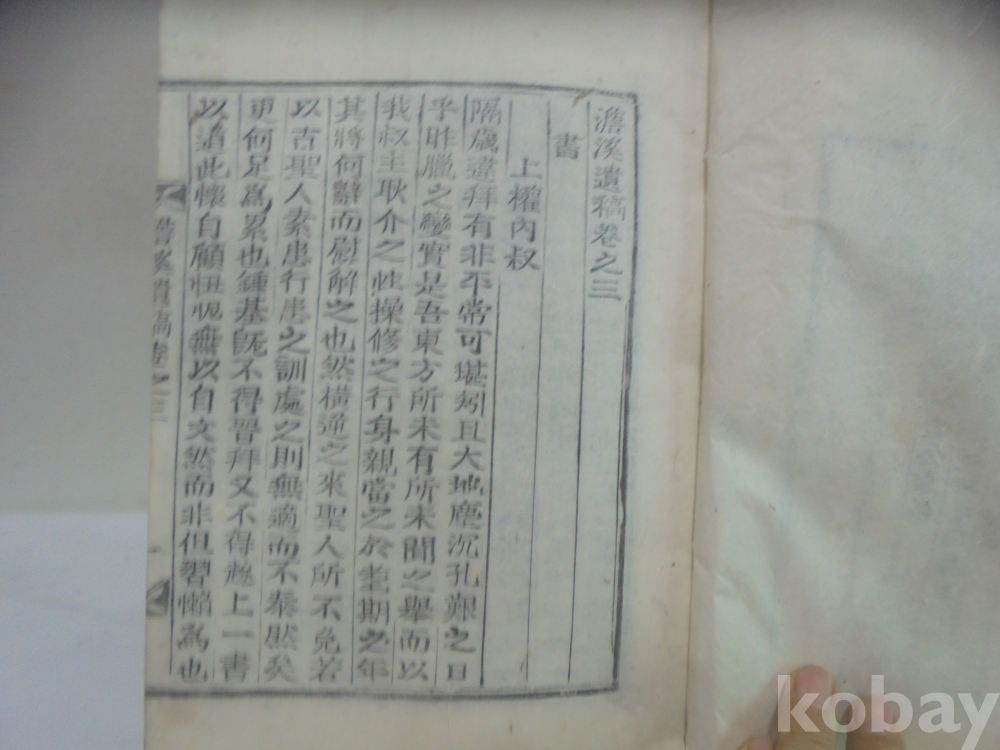 澹溪遺稿卷之三
書
上權內叔
隔歲違拜有非不常可堪矧且大地塵沉孔艱之日
乎昨臘之變實是吾東方所未有所未聞之舉而以
我叔主耿介之性操修之行身親當之於耋期之年
其將何辭而慰解之也然橫逆之來聖人所不免若
以古聖人素患行患之訓處之則無適而不泰然矣
更何足爲累也鍾基旣不得晉拜又不得趍上一書
以道此懷自顧忸怩無以自文然而非但習懶爲也
溪遺稿卷之三
kobay